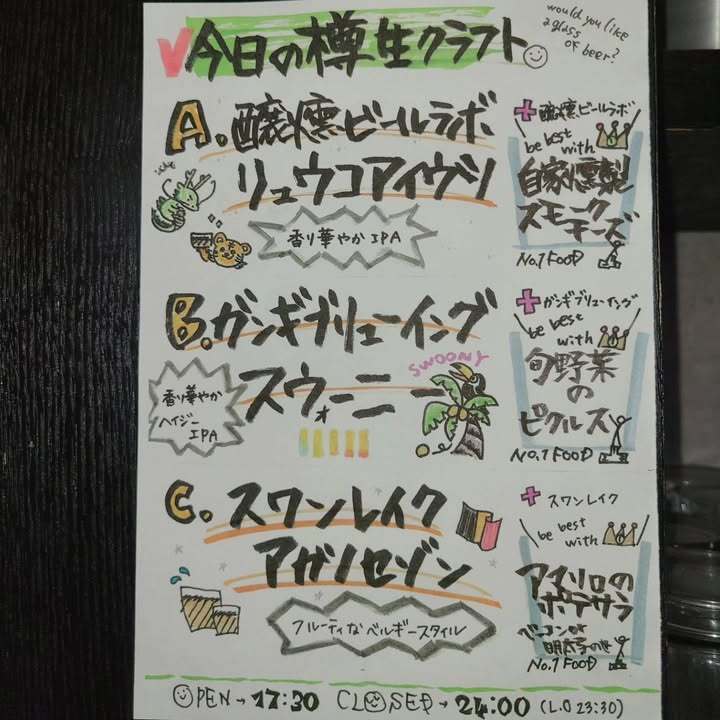 今日の樽生クラフト
would you like
a glass
of beer?
A. 醸燻ビールラボ
リュウコアイウン
香り華やか IPA
+ 醸燻ビールラボ
be best
with
自家燻製
スモーク
チーズ
No.1 FOOD
B. ガンギブリューイング
スウォーニー
SWOONY
香り華やか
ヘイジー
IPA
+ ガンギブリューイング
be best
with
旬野菜
の
ピクルス
No.1 FOOD
C. スワンレイク
アガノセゾン
フルーティなベルギースタイル
+ スワンレイク
be best
with
ポテサラ
No.1 FOOD
OPEN→17:30 CLOSED→24:00 (L.O 23:30)